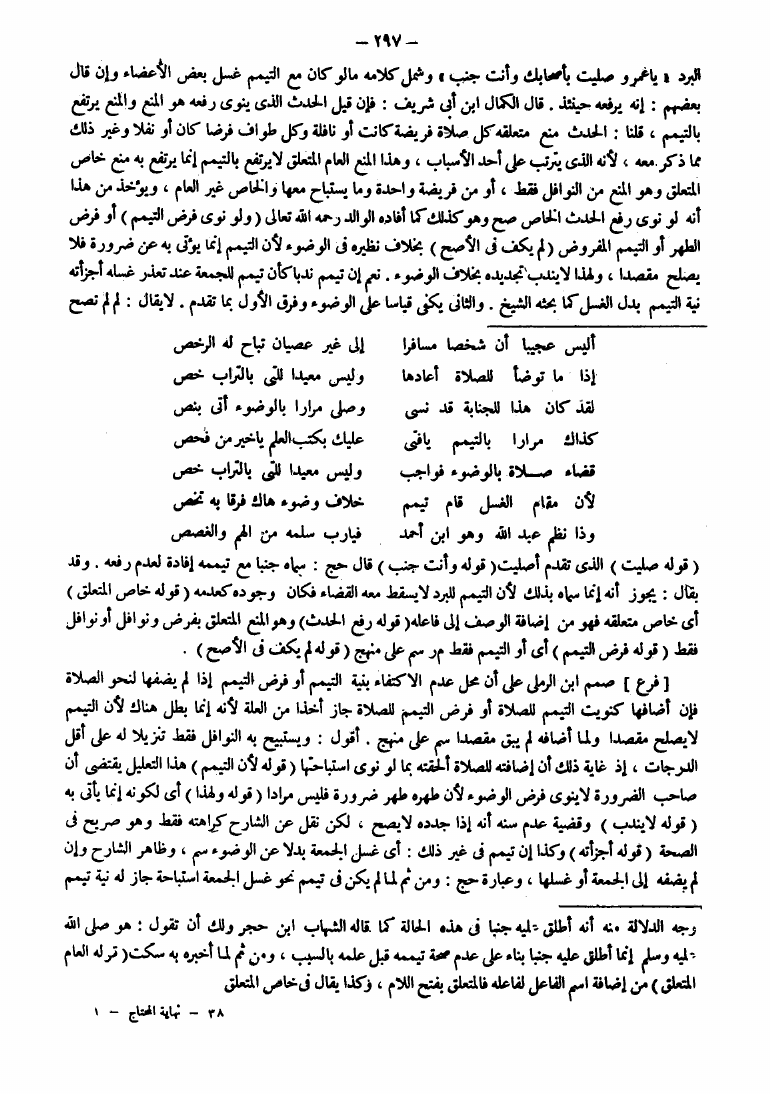 — ٢٩٧ —
البرد « ياعمرو صليت بأصحابك وأنت جنب » وشمل كلامه مالو كان مع التيمم غسل بعض الأعضاء وإن قال
بعضهم : إنه يرفعه حينئذ . قال الكمال ابن أبى شريف : فإن قيل الحدث الذى ينوى رفعه هو المنع والمنع يرتفع
بالتيمم ، قلنا : الحدث منع متعلقه كل صلاة فريضة كانت أو نافلة وكل طواف فرضا كان أو نفلا وغير ذلك
مما ذكر معه ، لأنه الذى يترتب على أحد الأسباب ، وهذا المنع العام المتعلق لايرتفع بالتيمم إنما يرتفع به منع خاص
المتعلق وهو المنع من النوافل فقط ، أو من فريضة واحدة وما يستباح معها والخاص غير العام ، ويؤخذ من هذا
أنه لو نوى رفع الحدث الخاص صح وهو كذلك كما أفاده الوالد رحمه الله تعالى ( ولو نوى فرض التيمم ) أو فرض
الطهر أو التيمم المفروض ( لم يكف فى الأصح ) بخلاف نظيره فى الوضوء لأن التيمم إنما يؤتى به عن ضرورة فلا
يصلح مقصدا ، ولهذا لايندب تجديده بخلاف الوضوء . نعم إن تيمم ندبا كأن تيمم للجمعة عند تعذر غسله أجزأته
نية التيمم بدل الغسل كما بحثه الشيخ . والثانى يكفى قياسا على الوضوء وفرق الأول بما تقدم . لايقال : لم لم تصح
أليس عجيبا أن شخصا مسافرا إلى غير عصيان تباح له الرخص
إذا ما توضأ للصلاة أعادها وليس معيدا للتى بالتراب خص
لقد كان هذا للجنابة قد نسى وصلى مرارا بالوضوء أتى بنص
كذاك مرارا بالتيمم يافتى عليك بكتب العلم ياخير من فحص
قضاء صلاة بالوضوء فواجب وليس معيدا للتى بالتراب خص
لأن مقام الغسل قام تيمم خلاف وضوء هاك فرقا به تخص
وذا نظم عبد الله وهو ابن أحمد فيارب سلمه من الهم والغصص
( قوله صليت ) الذى تقدم أصليت ( قوله وأنت جنب ) قال حج : سماه جنبا مع تيممه إفادة لعدم رفعه . وقد
يقال : يجوز أنه إنما سماه بذلك لأن التيمم للبرد لايسقط معه القضاء فكان وجوده كعدمه ( قوله خاص المتعلق )
أى خاص متعلقه فهو من إضافة الوصف إلى فاعله ( قوله رفع الحدث ) وهو المنع المتعلق بفرض ونوافل أو نوافل
فقط ( قوله فرض التيمم ) أى أو التيمم فقط مر سم على منهج ( قوله لم يكف فى الأصح ) .
[ فرع ] صمم ابن الرملى على أن محل عدم الاكتفاء بنية التيمم أو فرض التيمم إذا لم يضفها لنحو الصلاة
فإن أضافها كنويت التيمم للصلاة أو فرض التيمم للصلاة جاز أخذا من العلة لأنه إنما بطل هناك لأن التيمم
لايصلح مقصدا ولما أضافه لم يبق مقصدا سم على منهج . أقول : ويستبيح به النوافل فقط تنزيلا له على أقل
الدرجات ، إذ غاية ذلك أن إضافته للصلاة ألحقته بما لو نوى استباحتها ( قوله لأن التيمم ) هذا التعليل يقتضى أن
صاحب الضرورة لاينوى فرض الوضوء لأن طهره طهر ضرورة فليس مرادا ( قوله ولهذا ) أى لكونه إنما يأتى به
( قوله لايندب ) وقضية عدم سنه أنه إذا جدده لايصح ، لكن نقل عن الشارح كراهته فقط وهو صريح فى
الصحة ( قوله أجزأته ) وكذا إن تيمم فى غير ذلك : أى غسل الجمعة بدلا عن الوضوء سم ، وظاهر الشارح وإن
لم يضفه إلى الجمعة أو غسلها ، وعبارة حج : ومن ثم لما لم يكن فى تيمم نحو غسل الجمعة استباحة جاز له نية تيمم
وجه الدلالة منه أنه أطلق عليه جنبا فى هذه الحالة كما قاله الشهاب ابن حجر ولك أن تقول : هو صلى الله
عليه وسلم إنما أطلق عليه جنبا بناء على عدم صحة تيممه قبل علمه بالسبب ، ومن ثم لما أخبره به سكت ( قوله العام
المتعلق ) من إضافة اسم الفاعل لفاعله فالمتعلق بفتح اللام ، وكذا يقال فى خاص المتعلق
٣٨ – نهاية المحتاج – ١